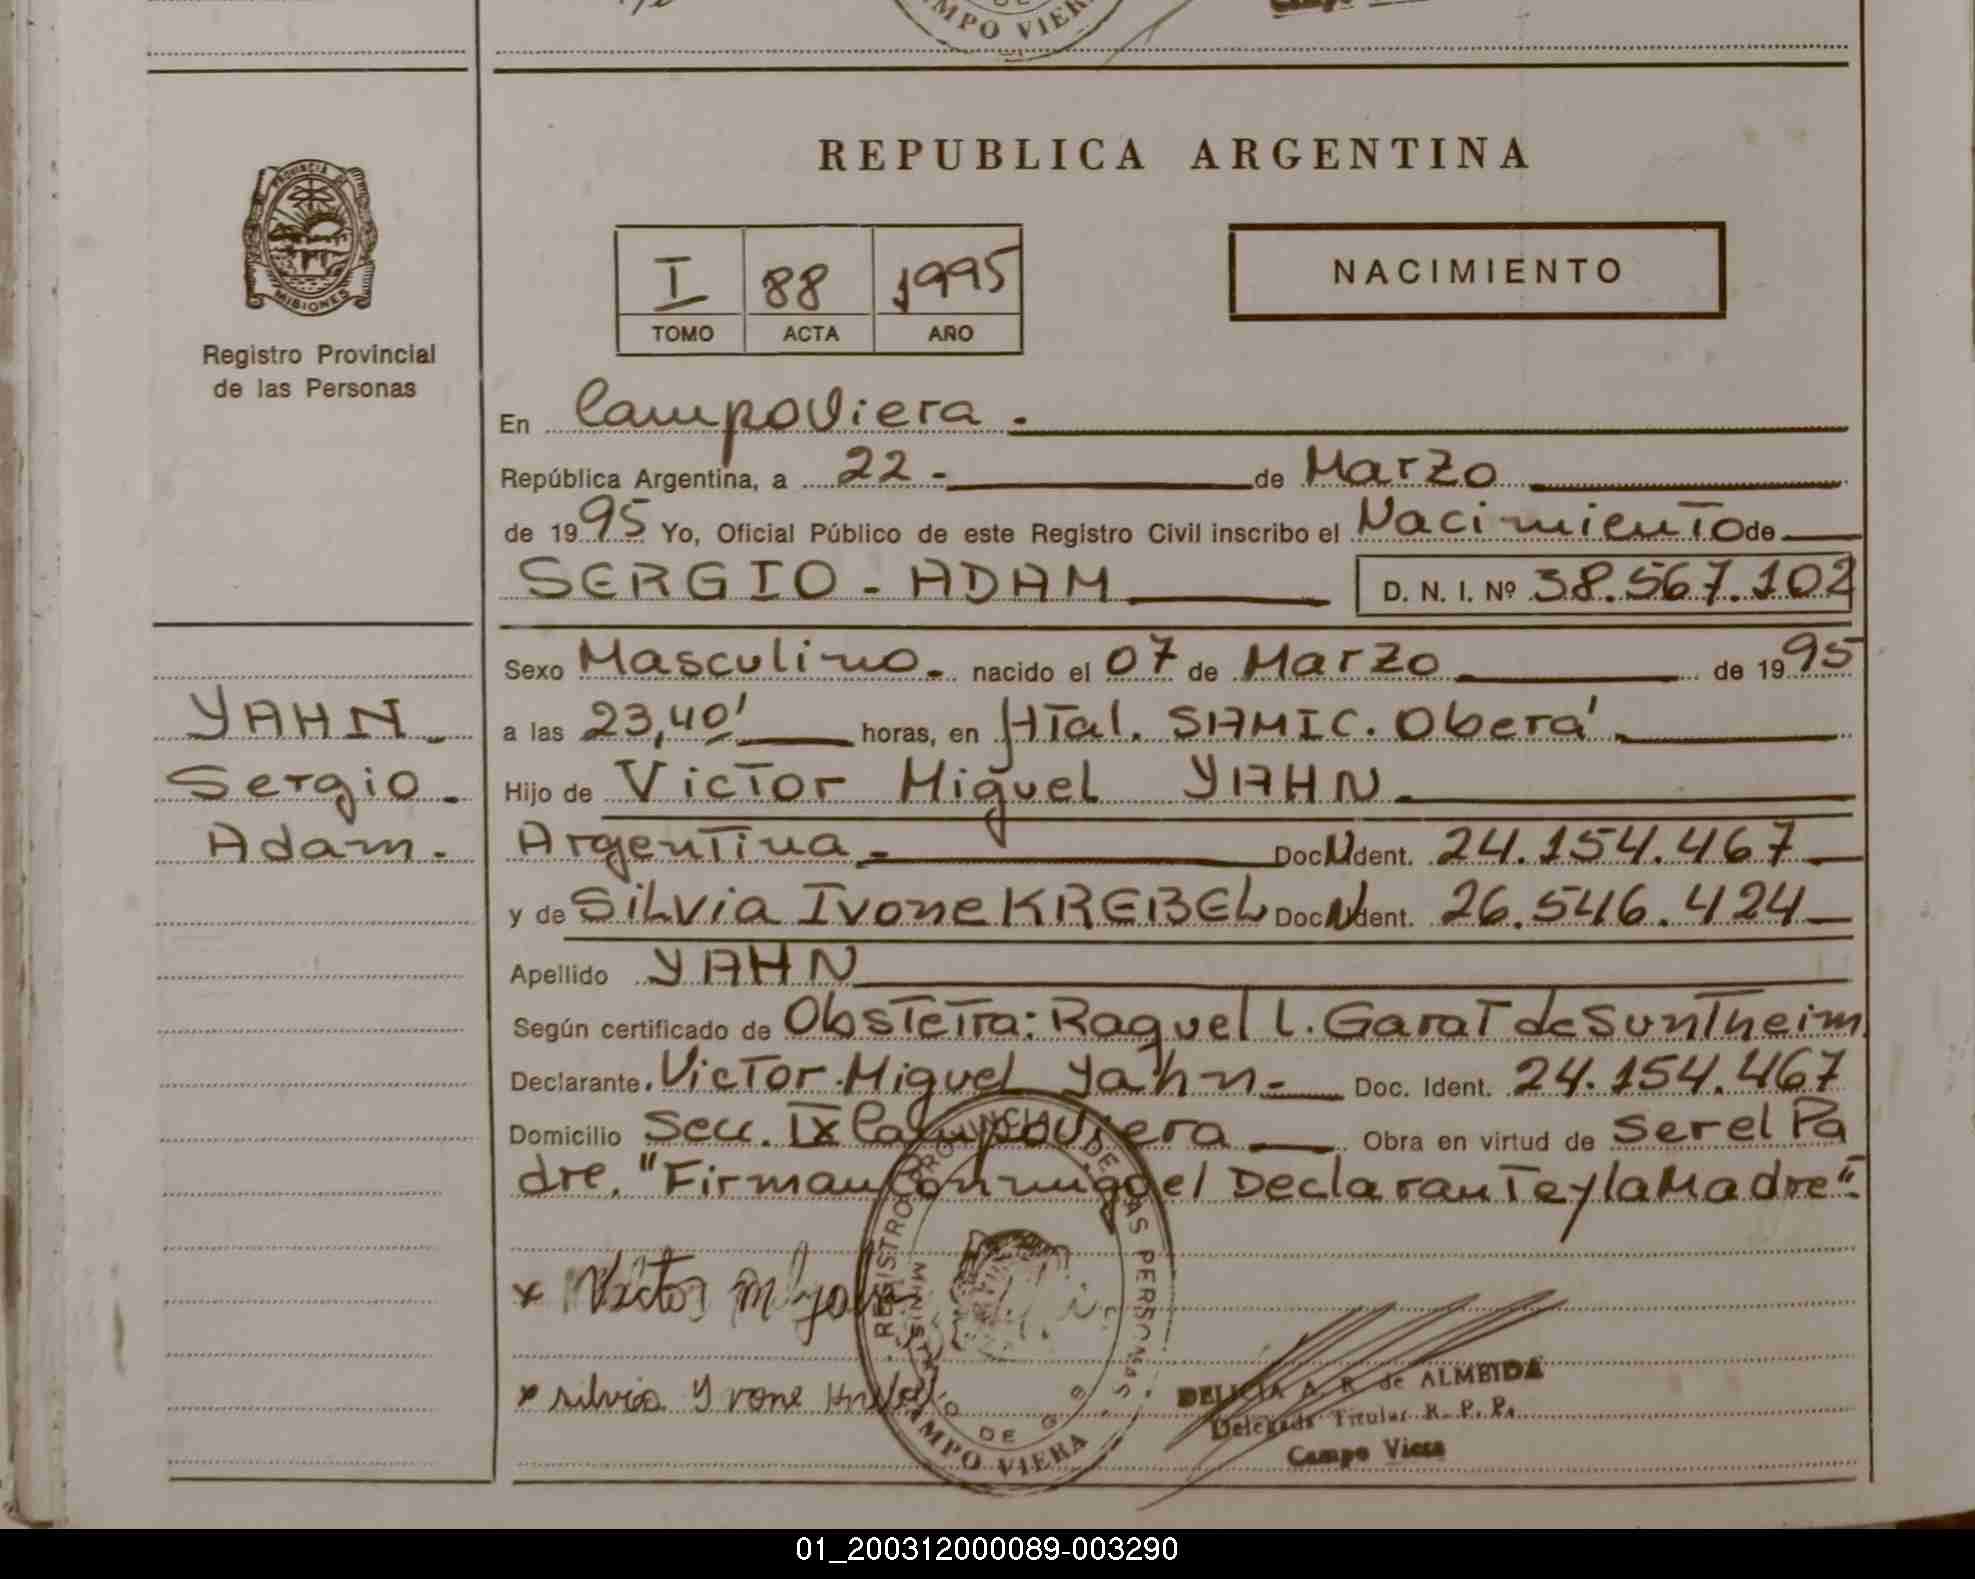 CAMPO VIERA
REPUBLICA ARGENTINA
PROVINCIA DE
MISIONES
Registro Provincial
de las Personas
I 88 1995
TOMO ACTA AÑO
NACIMIENTO
En Campo Viera.
República Argentina, a 22- de Marzo
de 1995 Yo, Oficial Público de este Registro Civil inscribo el Nacimiento de
SERGIO - ADAM D. N. I. Nº 38.567.102
Sexo Masculino. nacido el 07 de Marzo de 1995
YAHN
Sergio
Adam.
a las 23,40' horas, en HTal. SAMIC. Oberá
Hijo de Victor Miguel YAHN
Argentina. Doc N Ident. 24.154.467
y de Silvia Ivone KREBEL Doc N Ident. 26.546.424
Apellido YAHN
Según certificado de Obstetra: Raquel L. Garat de Suntheim
Declarante. Victor Miguel Yahn. Doc. Ident. 24.154.467
Domicilio Secc. IX Campo Viera Obra en virtud de Ser el Pa
dre. "Firman Conmigo el Declarante y la Madre".
x Victor M Yahn
x silvia Yvone
REGISTRO PROVINCIAL DE LAS PERSONAS
CAMPO VIERA
DELICIA A. R. de ALMEIDA
Delegada Titular R. P. P.
Campo Viera
01_200312000089-003290